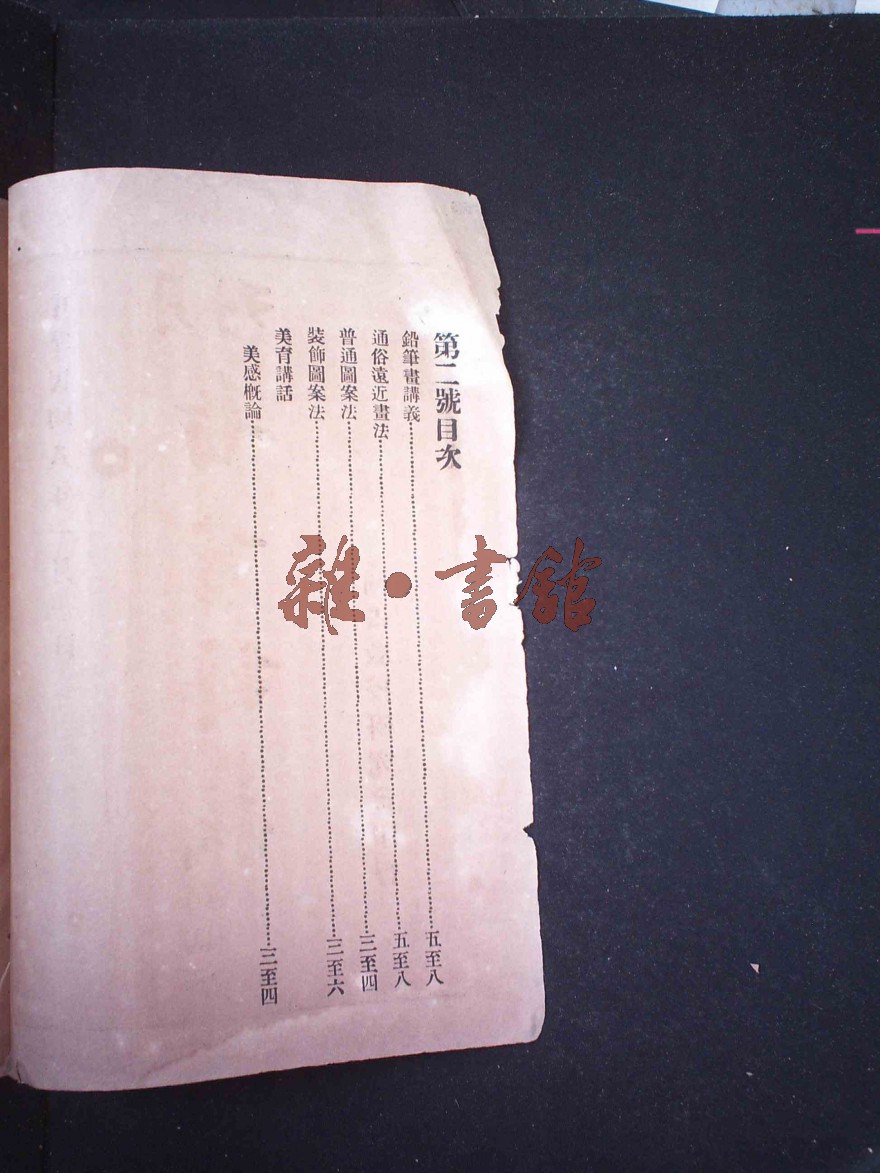 第二號目次
鉛筆畫講義……五至八
通俗遠近畫法……五至八
普通圖案法……三至四
裝飾圖案法……三至六
美育講話
美感概論……三至四
雜·書館